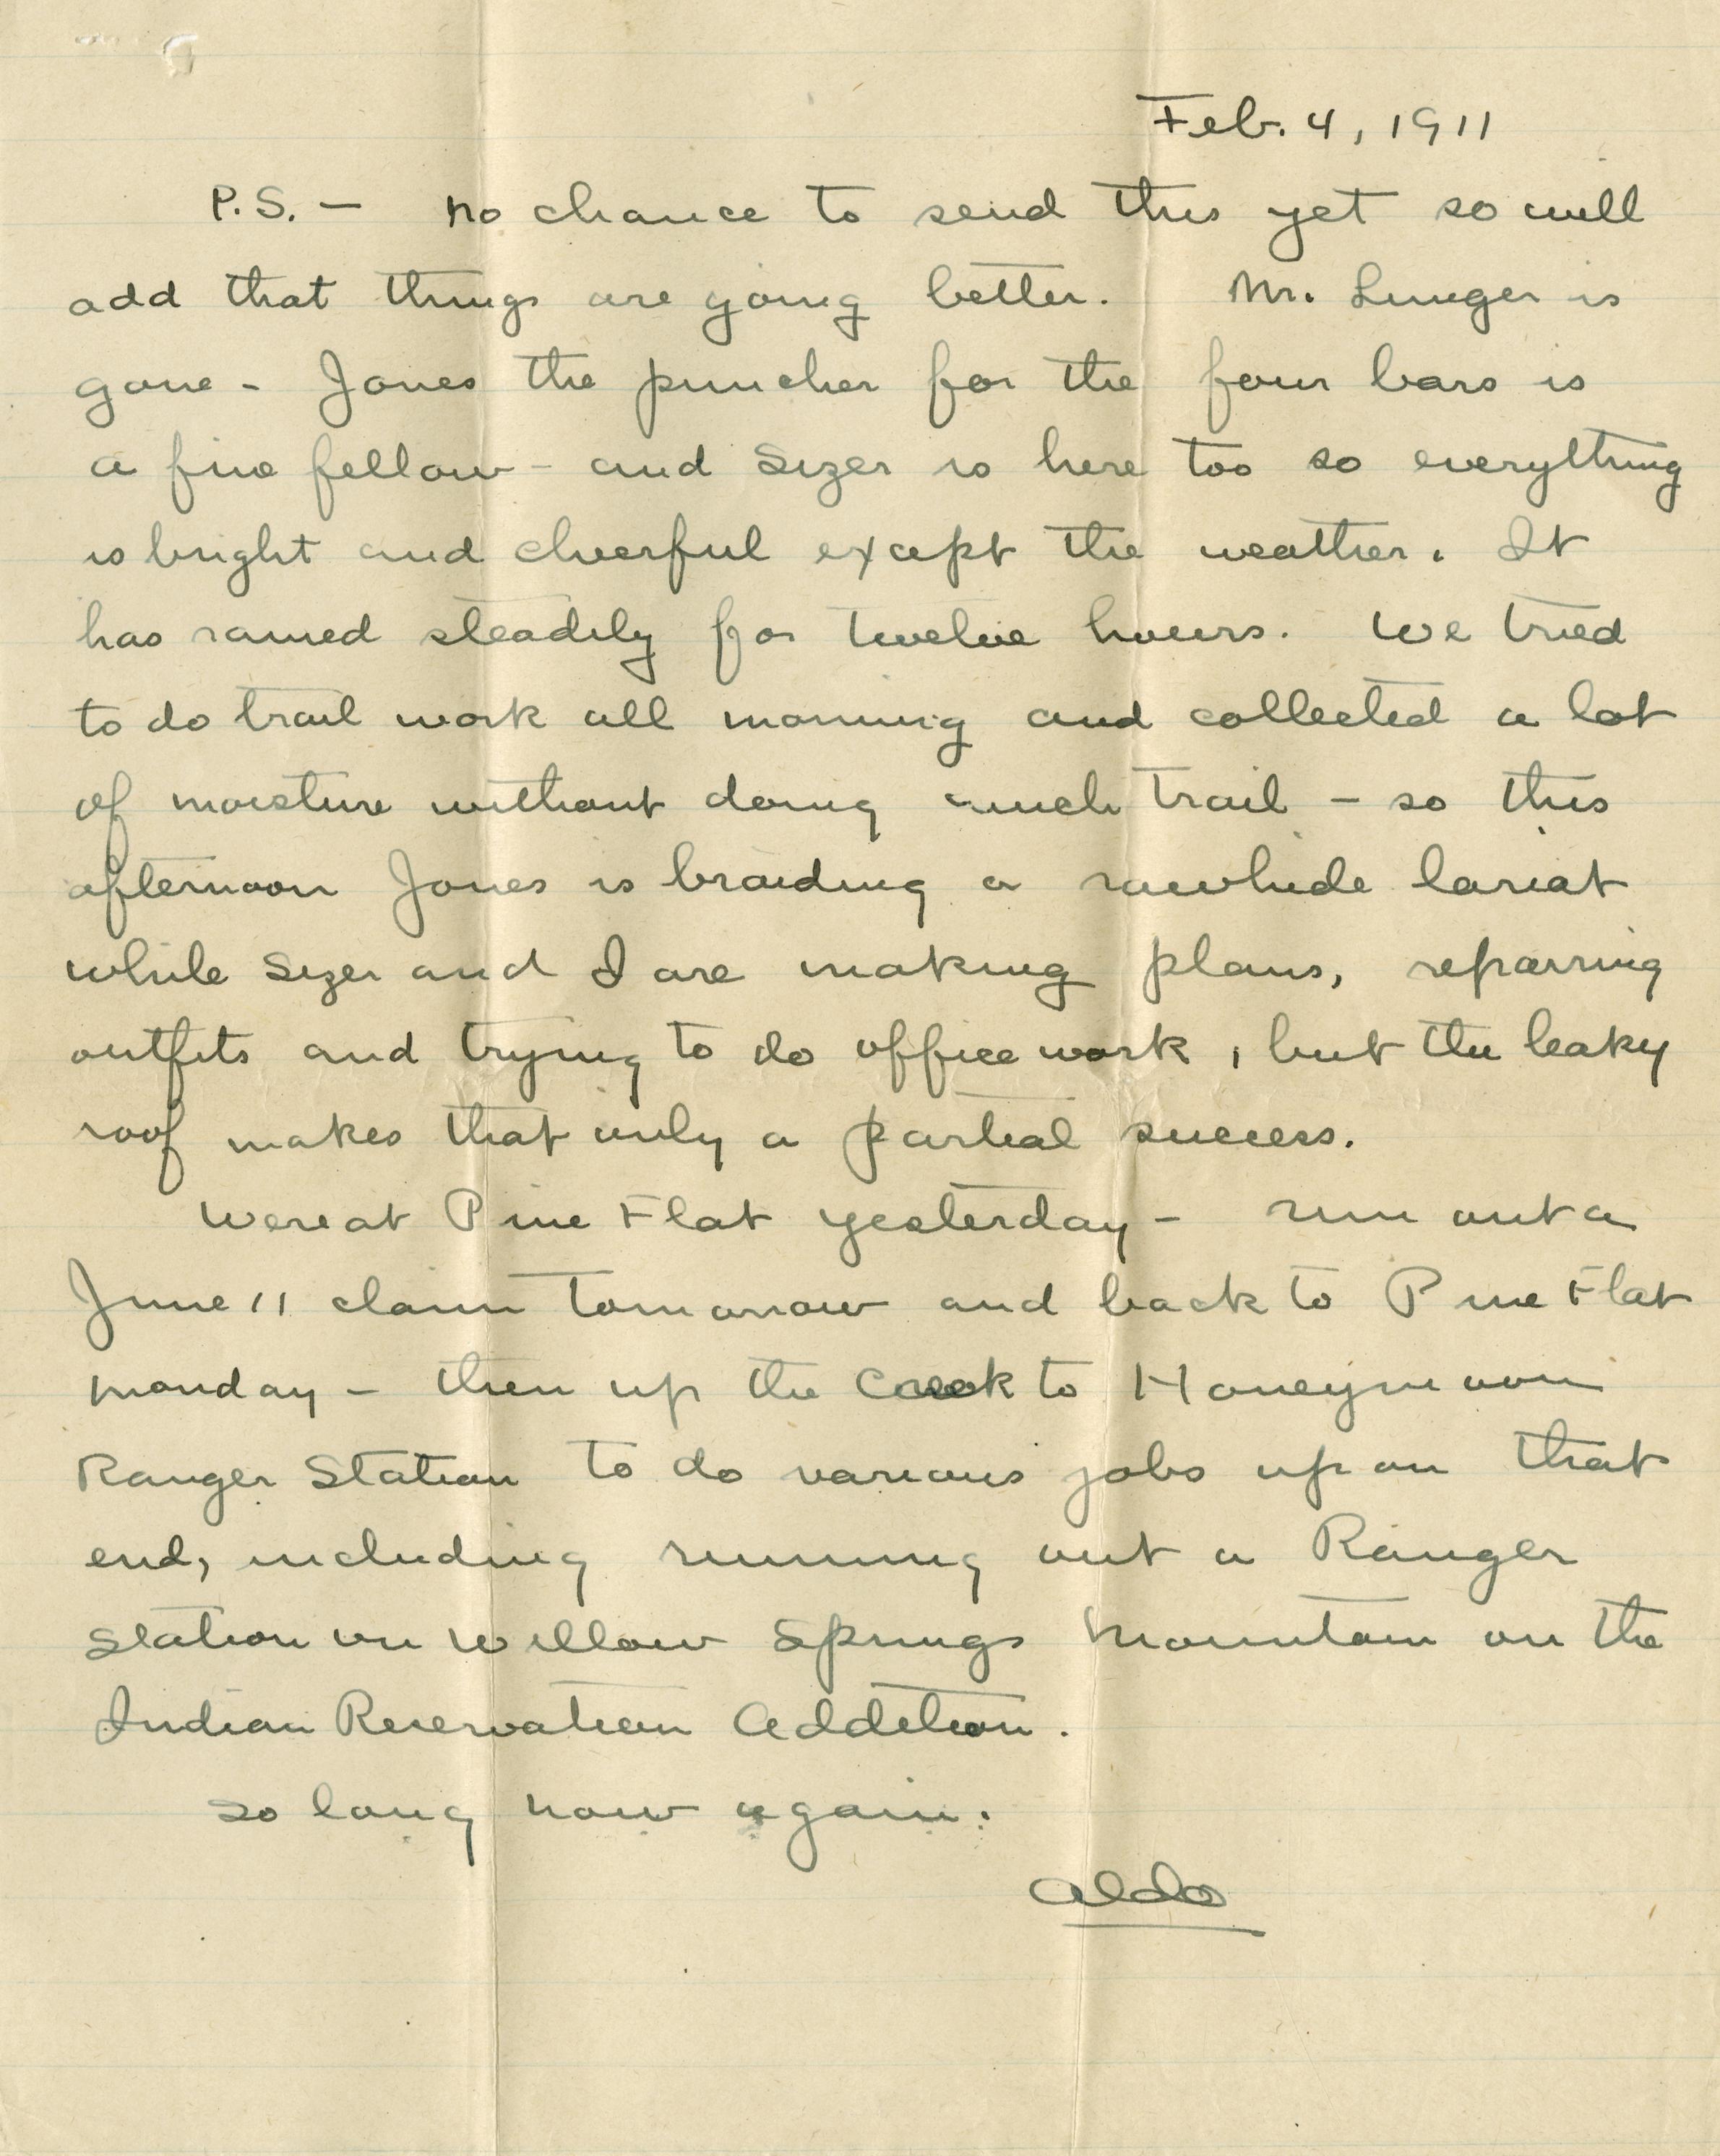 Feb. 4, 1911
P.S. — No chance to send this yet so will
add that things are going better. Mr. Lunger is
gone - Jones the puncher for the four bars is
a fine fellow - and Sizer is here too so everything
is bright and cheerful except the weather. It
has rained steadily for twelve hours. We tried
to do trail work all morning and collected a lot
of moisture without doing much trail - so this
afternoon Jones is braiding a rawhide lariat
while Sizer and I are making plans, repairing
outfits and trying to do office work, but the leaky
roof makes that only a partial success.
Were at Pine Flat yesterday - run out a
June 11 claim tomorrow and back to Pine Flat
Monday - then up the Creek to Honeymoon
Ranger Station to do various jobs up on that
end, including running out a Ranger
Station on Willow Springs Mountain on the
Indian Reservation Addition.
So long now again.
Aldo